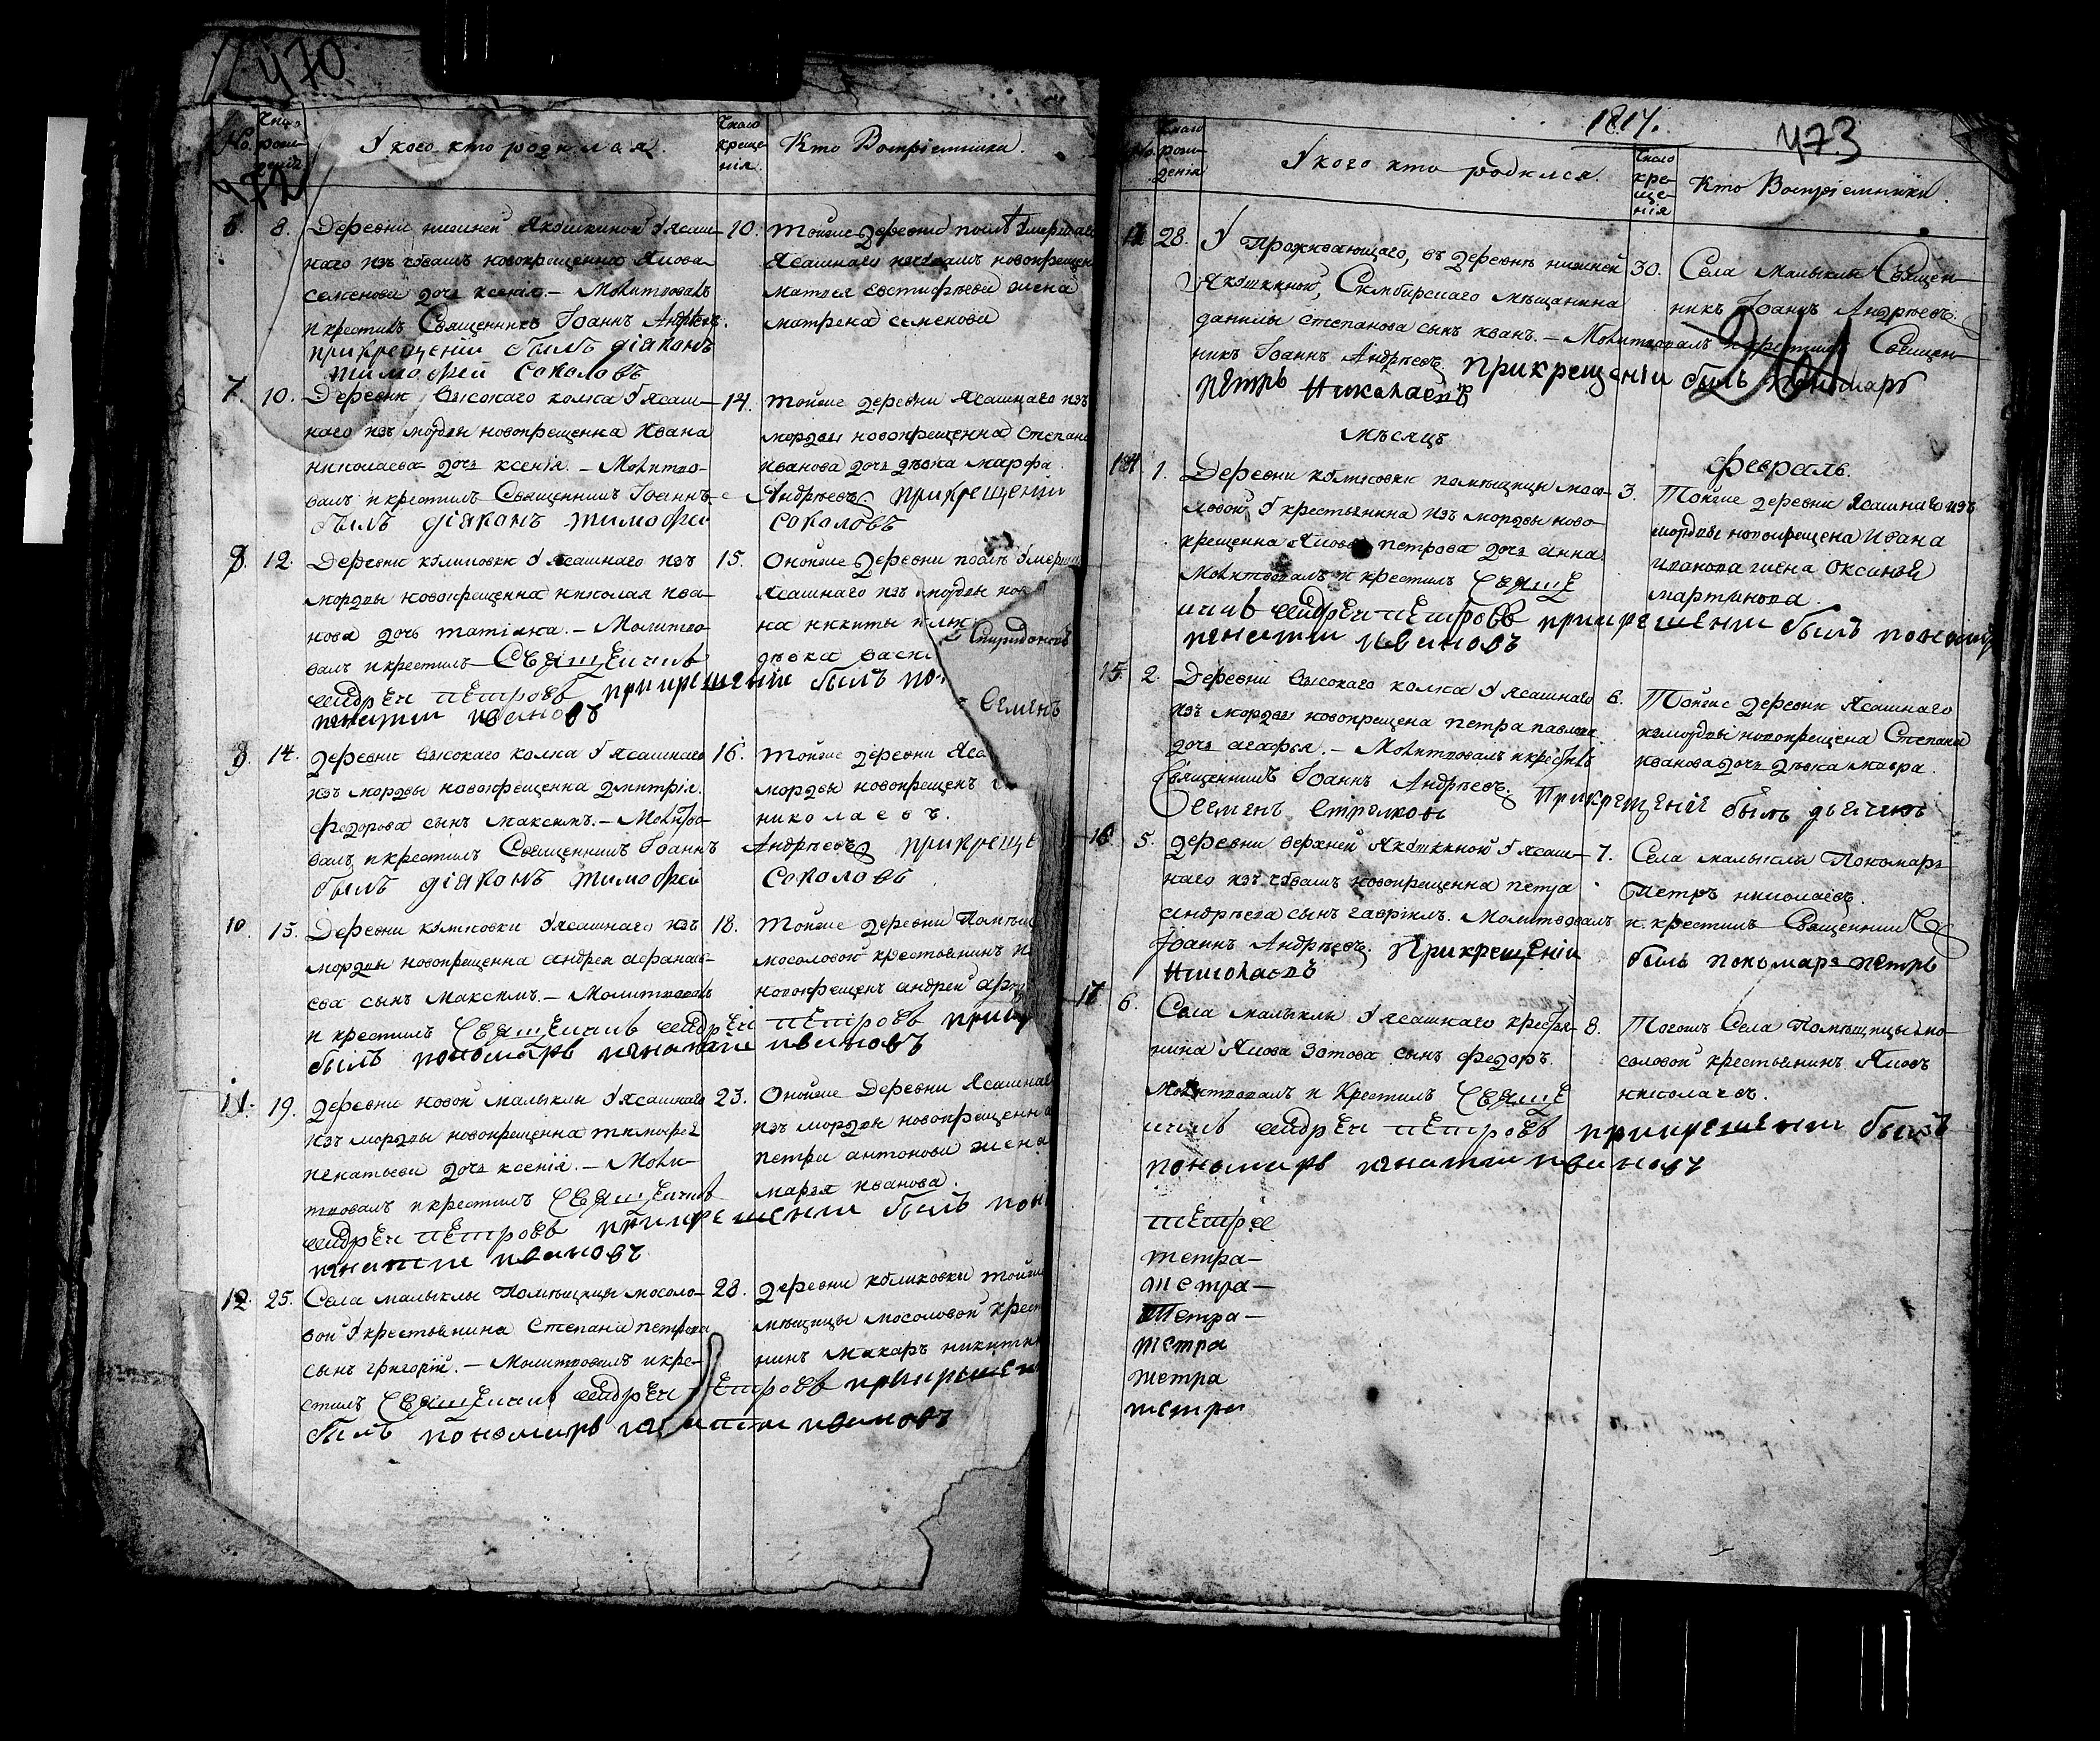 470
472
№
Число рож-дения
У кого кто родился.
Число креще-нія.
Кто Воспріемники.
6. 8. Деревни нижней Якушкиной У ясаш-
наго изъ чувашъ новокрещенна Якова
семенова дочь ксенія. – Молитвовалъ
и крестилъ Священникъ Іоаннъ Андрѣевъ.
прикрещеніи былъ діяконъ
тимофей соколовъ
10. тойже Деревни послѣ умершаго
Ясашнаго изчувашъ новокрещен
матвея евстифѣева жена
матрена семенова
7. 10. Деревни высокаго колка У ясаш-
наго изъ мордвы новокрещенна Ивана
николаева дочь ксенія. – Молитво-
валъ и крестилъ Священникъ Іоаннъ
былъ діяконъ тимофей
14. тойже деревни ясашнаго изъ
мордвы новокрещенна Степана
Иванова дочь дѣвка марфа.
Андрѣевъ прикрещеніи
соколовъ
12. Деревни куликовки У Ясашнаго изъ
мордвы новокрещенна николая ива-
нова дочь татіана. – Молитво-
валъ и крестилъ Священникъ
андрей петровъ прикрещеніи былъ
игнатии ивановъ
15. Онойже Деревни послѣ умерша
ясашнаго изъ мордвы нов
на никиты
дѣвка васи
Спиридоновъ
Семенъ
14. Деревни высокаго колка У ясашнаго
изъ мордвы новокрещенна дмитрія
федорова сынъ максимъ. – Молитво-
валъ и крестилъ Священникъ Іоаннъ
былъ діяконъ тимофей
16. тойже деревни Яса
мордвы новокрещенъ
николаевъ.
Андрѣевъ прикреще
Соколовъ
10. 15. Деревни куликовки У ясашнаго изъ
мордвы новокрещенна андрея афанась-
ева сынъ максимъ. – Молитвовалъ
и крестилъ Священникъ андрей петровъ прикр
былъ пономарь игнатии ивановъ
18. тойже деревни Помѣщи
мосоловой крестьянинъ и
новокрещенъ андрей
11. 19. Деревни новой малыклы У ясашнаго
изъ мордвы новокрещенна тимофея
игнатьева дочь ксенія. – Моли-
твовалъ и крестилъ Священникъ
андрей петровъ прикрещении былъ пон
игнатии ивановъ
23. Онойже Деревни Ясашнаг
изъ мордвы новокрещенна
петра антонова жена
марья иванова.
12. 25. Села малыклы Помѣщицы мосоло-
вой У крестьянина Степана петрова
сынъ григорій. – Молитвовалъ и кре-
стилъ Священникъ андрей петровъ прикрещен
былъ пономарь игнатии ивановъ
28. Деревни куликовки тойже
мѣщицы мосоловой крест
нинъ макаръ никитин
1817.
473
Число рож-денія
У кого кто родился.
Число кре-ще-нія
Кто Воспріемники.
28. У Проживающаго, въ деревнѣ нижней
Якушкиной, Симбирскаго мѣщанина
данилы степанова сынъ иванъ. – Молитвовалъ и крестилъ Священ-
никъ Іоаннъ Андрѣевъ. Прикрещеніи былъ пономарь
петръ Николаевъ
30. Села малыклы Священ-
никъ Іоаннъ Андрѣевъ.
мѣсяцъ
февраль.
14 1. Деревни куликовки помѣщицы мосо-
ловой У крестьянина изъ мордвы ново-
крещенна Якова петрова дочь анна.
Молитвовалъ и крестилъ Священ
никъ андрей петровъ прикрещении былъ поном
игнатии ивановъ
3. Тойже деревни ясашнаго изъ
мордвы новокрещена Ивана
иванова жена Оксинья
мартынова.
15. 2. Деревни высокаго колка У ясашнаго
изъ мордвы новокрещена петра павлова
дочь агафья. – Молитвовалъ и крестилъ
Священникъ Іоаннъ Андрѣевъ. Прикрещеніи былъ дьячокъ
Семенъ Стрелковъ
6. Тойже Деревни Ясашнаго
измордвы новокрещена Степана
иванова дочь дѣвка мавра.
16 5. Деревни верхней Якушкиной У ясаш-
наго изъ чувашъ новокрещенна петра
андрѣева сынъ гаврилъ. Молитвовалъ и крестилъ Священникъ
Іоаннъ Андрѣевъ. Прикрещеніи былъ пономарь петръ
Николаевъ
7. Села малыклы Пономарь
петръ николаевъ.
17 6. Села малыклы У ясашнаго кресть-
янина Якова Зотова сынъ федоръ.
Молитвовалъ и Крестилъ Священ
никъ андрей петровъ прикрещении былъ
пономарь игнатии ивановъ
8. Тогожъ Села Помѣщицы мо-
соловой крестьянинъ Яковъ
николаевъ.
петра
тетра–
тетра–
тетра–
тетра
тетра
тетра